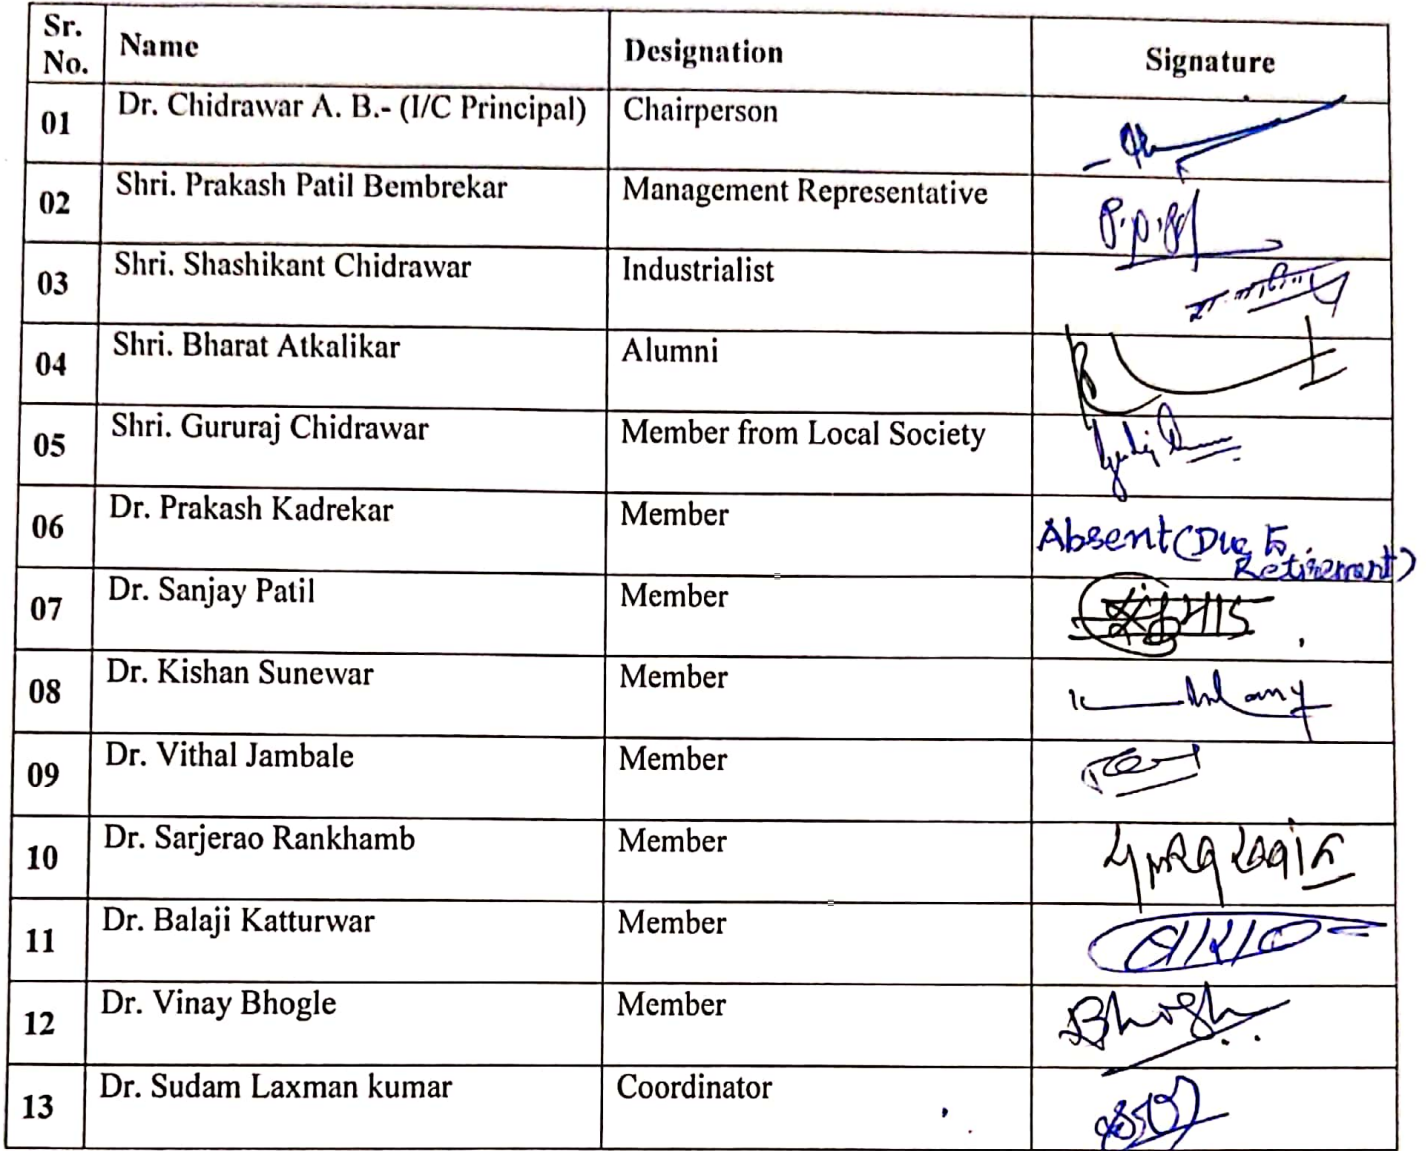 Sr. No. Name Designation Signature
01 Dr. Chidrawar A. B.- (I/C Principal) Chairperson
02 Shri. Prakash Patil Bembrekar Management Representative
03 Shri. Shashikant Chidrawar Industrialist
04 Shri. Bharat Atkalikar Alumni
05 Shri. Gururaj Chidrawar Member from Local Society
06 Dr. Prakash Kadrekar Member Absent (Due to Retirement)
07 Dr. Sanjay Patil Member
08 Dr. Kishan Sunewar Member
09 Dr. Vithal Jambale Member
10 Dr. Sarjerao Rankhamb Member
11 Dr. Balaji Katturwar Member
12 Dr. Vinay Bhogle Member Bhogle
13 Dr. Sudam Laxman kumar Coordinator